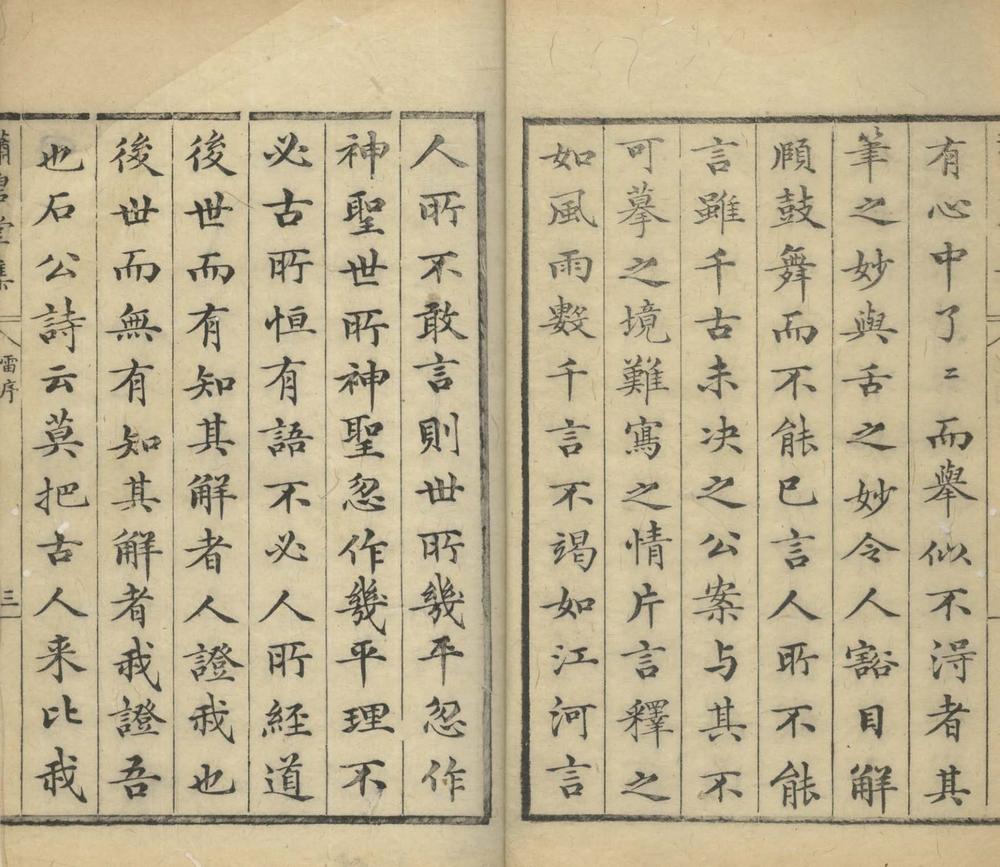 有心中了〻而舉似不淂者其
筆之妙與舌之妙令人豁目解
頤鼓舞而不能已言人所不能
言雖千古未决之公案与其不
可摹之境難寫之情片言釋之
如風雨數千言不竭如江河言
人所不敢言則世所幾平忽作
神聖世所神聖忽作幾平理不
必古所恒有語不必人所経道
後世而有知其解者人證我也
後世而無有知其解者我證吾
也石公詩云莫把古人来比我
瀟碧堂集
雷序
三